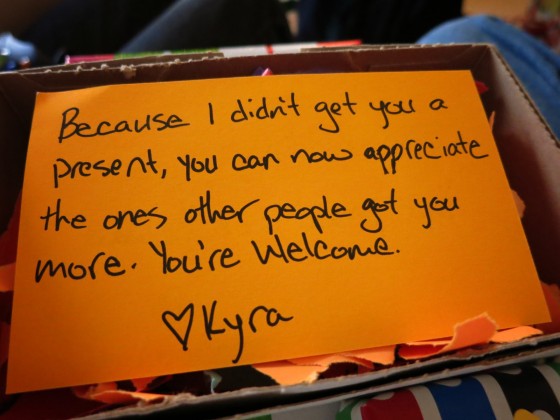 Because I didn't get you a
present, you can now appreciate
the ones other people got you
more. You're Welcome.
♡Kyra